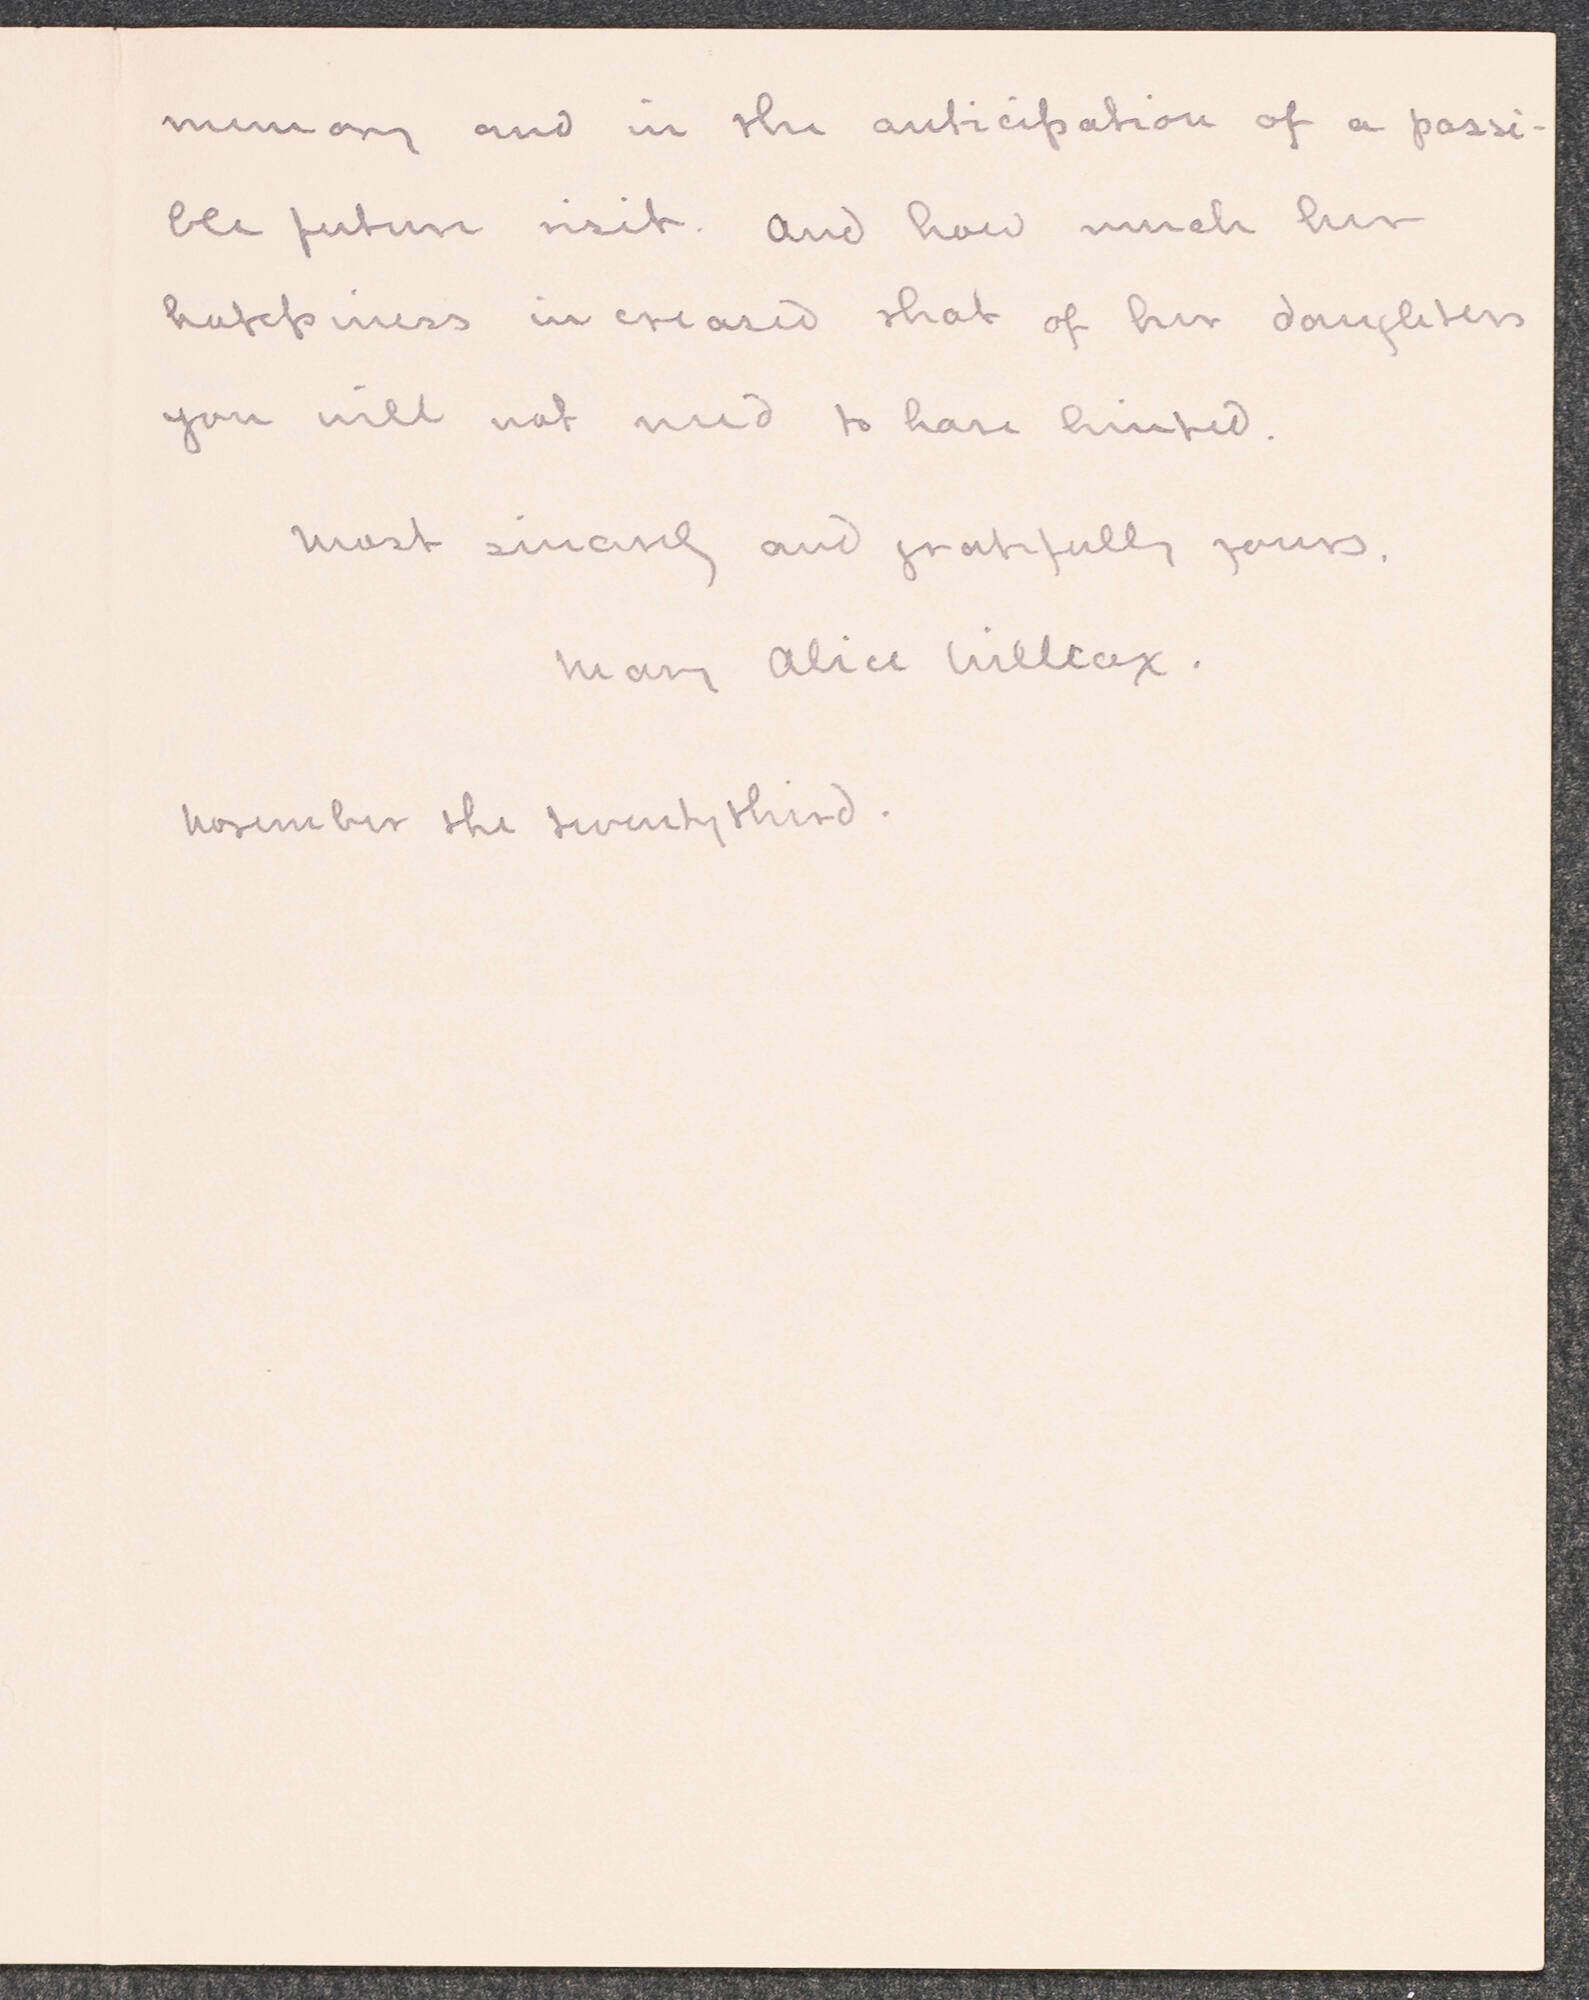 memory and in the anticipation of a possi-
ble future visit. And how much her
happiness increased that of her daughters
you will not need to have hinted.
Most sincerely and gratefully yours,
Mary Alice Willcox.
November the twentythird.